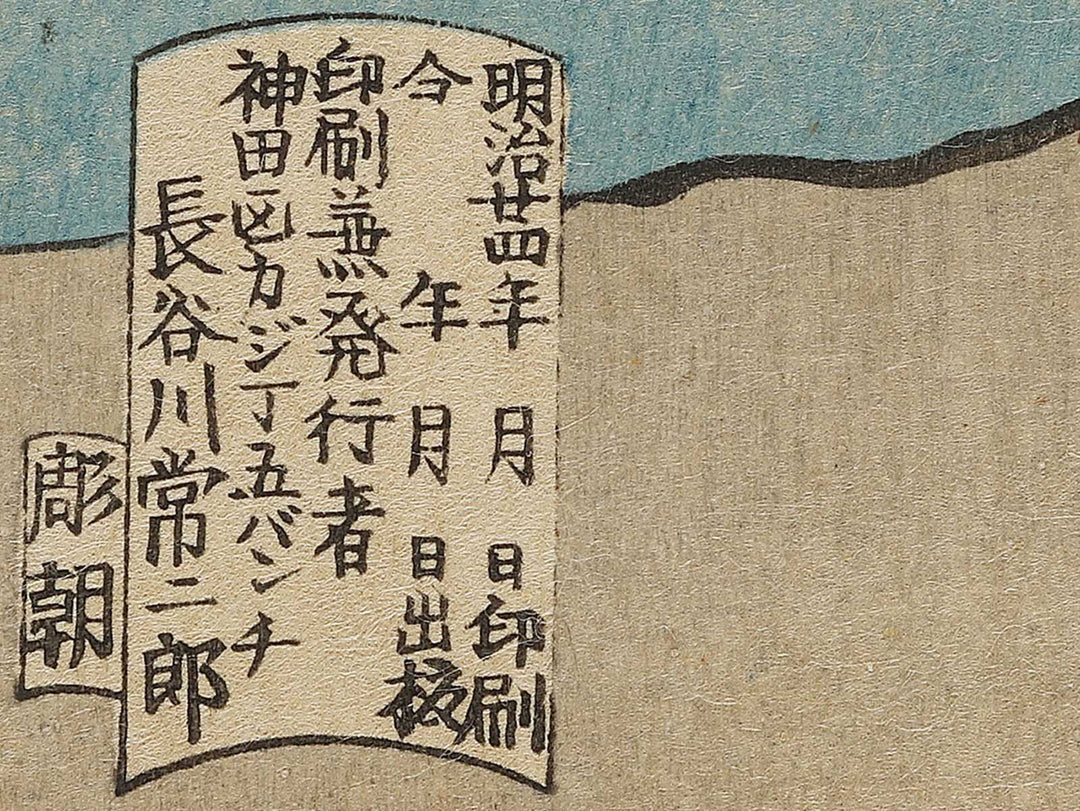 明治廿四年 月 日印刷
仝 年 月 日出板
印刷兼発行者
神田区カジ丁五バンチ
長谷川常二郎
彫朝